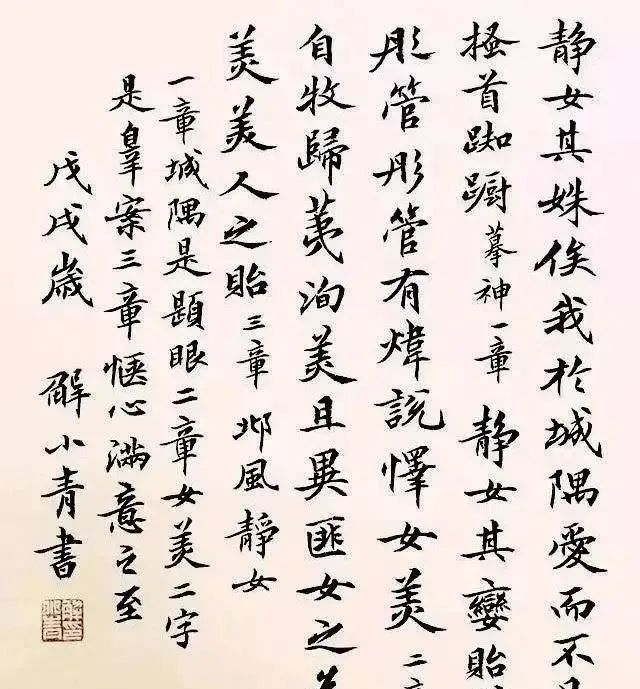 静女其姝俟我於城隅愛而不
搔首踟蹰摹神一章静女其孌貽
彤管彤管有煒説懌女美二
自牧歸荑洵美且異匪女之
美美人之貽三章邶風靜女
一章城隅是題眼二章女美二字
是辠案三章愜心滿意之至
戊戌歲 解小青書